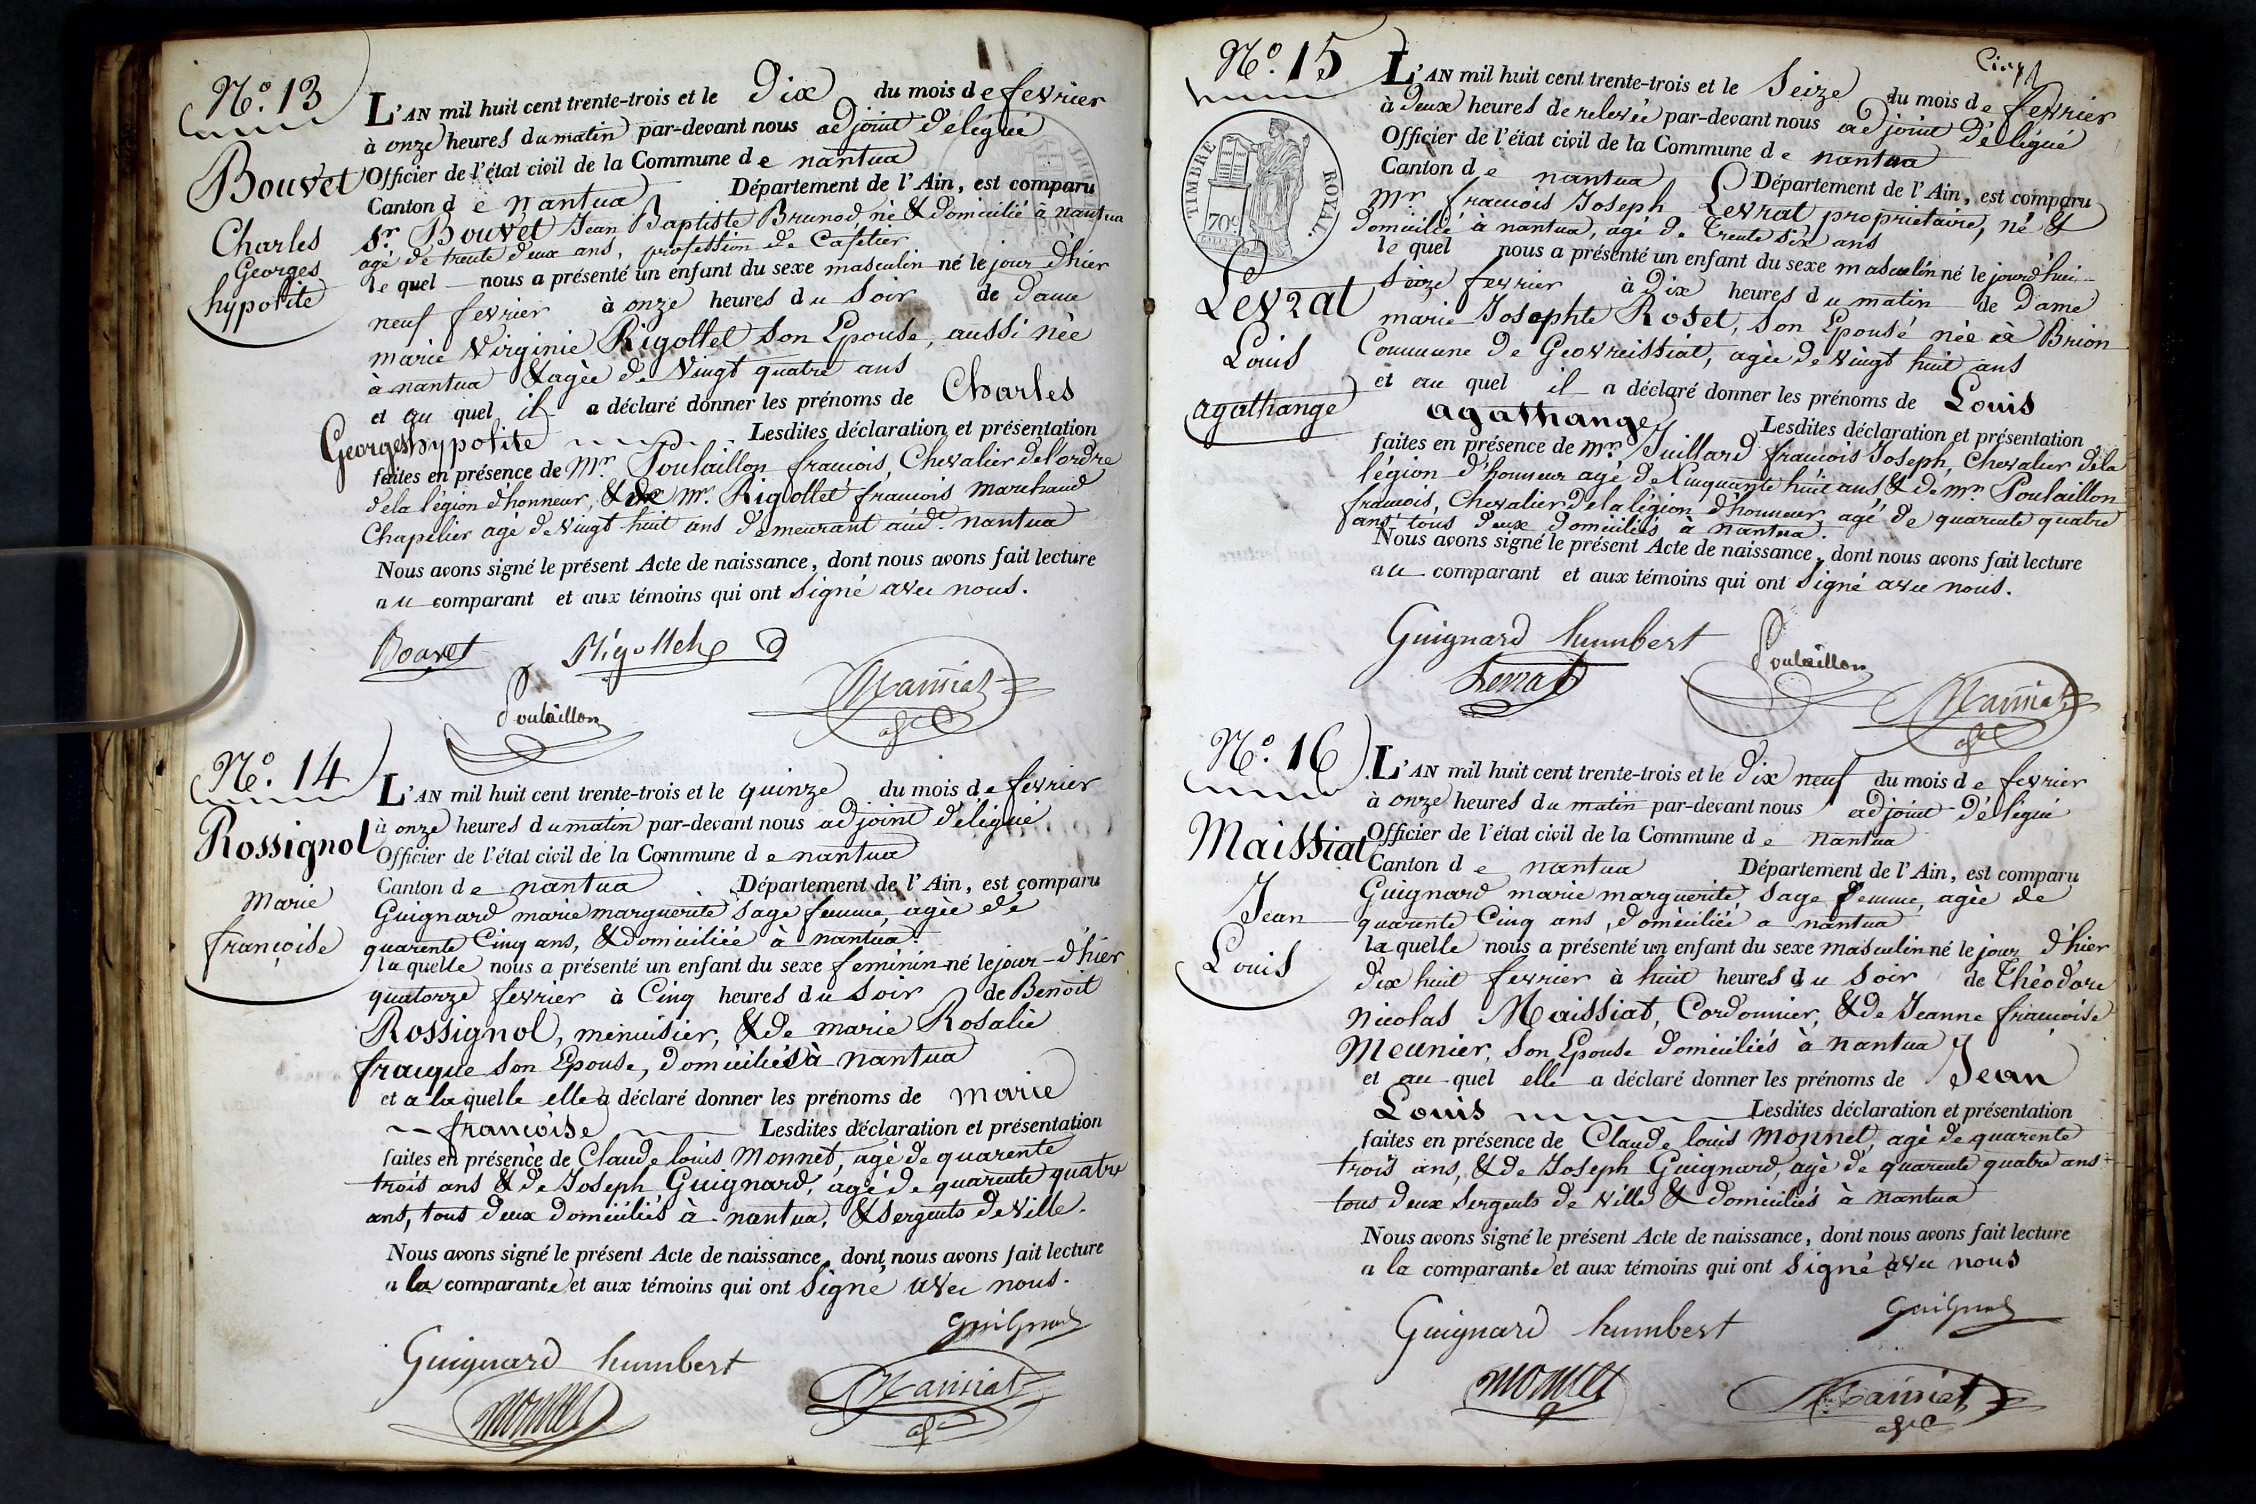 N.o 13
Bouvet
Charles
Georges
hypolite
L'AN mil huit cent trente-trois et le Dix du mois de fevrier
à onze heures du matin par-devant nous adjoint délégué
Officier de l'état civil de la Commune de nantua
Canton de nantua Département de l'Ain, est comparu
Sr. Bouvet Jean Baptiste Brunod né & domicilié à nantua
agé de trente deux ans, profession de Cafetier
le quel nous a présenté un enfant du sexe masculin né le jour d'hier
neuf fevrier à onze heures du soir de dame
marie Virginie Rigottet son Epouse, aussi née
à nantua & agèe de Vingt quatre ans
et au quel il a déclaré donner les prénoms de Charles
Georges hypolite Lesdites déclaration et présentation
faites en présence de Mr Poulaillon francois, Chevalier de l'ordre
de la légion d'honneur, & de mr. Rigottet francois Marchand
Chapelier agé de vingt huit ans demeurant aud.t nantua
Nous avons signé le présent Acte de naissance, dont nous avons fait lecture
au comparant et aux témoins qui ont signé avec nous.
Bouvet Rigottet
Poulaillon Maissiat
N.o 14
Rossignol
Marie
françoise
L'AN mil huit cent trente-trois et le quinze du mois de fevrier
à onze heures du matin par-devant nous adjoint délégué
Officier de l'état civil de la Commune de nantua
Canton de nantua Département de l'Ain, est comparu
Guignard marie marguerite sage femme, agèe de
quarente Cinq ans, & domiciliée à nantua.
la quelle nous a présenté un enfant du sexe feminin né le jour d'hier
quatorze fevrier à Cinq heures du soir de Benoit
Rossignol, menuisier, & de marie Rosalie
fracque son Epouse, domiciliés à nantua
et a la quelle elle a déclaré donner les prénoms de marie
francoise Lesdites déclaration et présentation
faites en présence de Claude louis Monnet, agé de quarente
trois ans & de Joseph Guignard, agé de quarente quatre
ans, tous deux domiciliés à nantua, & sergents de Ville.
Nous avons signé le présent Acte de naissance, dont nous avons fait lecture
a la comparante et aux témoins qui ont signé avec nous.
Guignard
Guignard humbert
monnet Maissiat
N.o 15
Cinq
TIMBRE ROYAL.
70c.
Levrat
Louis
agathange
L'AN mil huit cent trente-trois et le Seize du mois de fevrier
à Deux heures de relevée par-devant nous adjoint délégué
Officier de l'état civil de la Commune de nantua
Canton de nantua Département de l'Ain, est comparu
Mr francois Joseph Levrat, proprietaire, né &
domicilié à nantua, agé de trente six ans
le quel nous a présenté un enfant du sexe masculin né le jourd'hui
seize fevrier à Dix heures du matin de Dame
marie Josephte Roset, son Epouse née à Brion
Commune de Geovreissiat, agèe de vingt huit ans
et au quel il a déclaré donner les prénoms de Louis
agathange Lesdites déclaration et présentation
faites en présence de mr. Juillard francois Joseph, Chevalier de la
légion d'honneur agé de Cinquante huit ans & de mr. Poulaillon
francois, Chevalier de la légion d'honneur, agé de quarente quatre
ans tous deux domiciliés à nantua.
Nous avons signé le présent Acte de naissance, dont nous avons fait lecture
au comparant et aux témoins qui ont signé avec nous.
Guignard humbert Poulaillon
Levrat Maissiat
N.o 16
Maissiat
Jean
Louis
L'AN mil huit cent trente-trois et le Dix neuf du mois de fevrier
à onze heures du matin par-devant nous adjoint délégué
Officier de l'état civil de la Commune de Nantua
Canton de nantua Département de l'Ain, est comparu
Guignard marie marguerite, sage femme, agèe de
quarente Cinq ans, domiciliée a nantua
la quelle nous a présenté un enfant du sexe masculin né le jour d'hier
Dix huit fevrier à huit heures du soir de Théodore
Nicolas Maissiat, Cordonnier, & de Jeanne francoise
Meunier, son Epouse domiciliés à Nantua
et au quel elle a déclaré donner les prénoms de Jean
Louis Lesdites déclaration et présentation
faites en présence de Claude louis Monnet, agé de quarente
trois ans, & de Joseph Guignard, agé de quarente quatre ans
tous deux sergents de Ville & domiciliés à nantua
Nous avons signé le présent Acte de naissance, dont nous avons fait lecture
a la comparante et aux témoins qui ont signé avec nous
Guignard humbert Guignard
monnet Maissiat